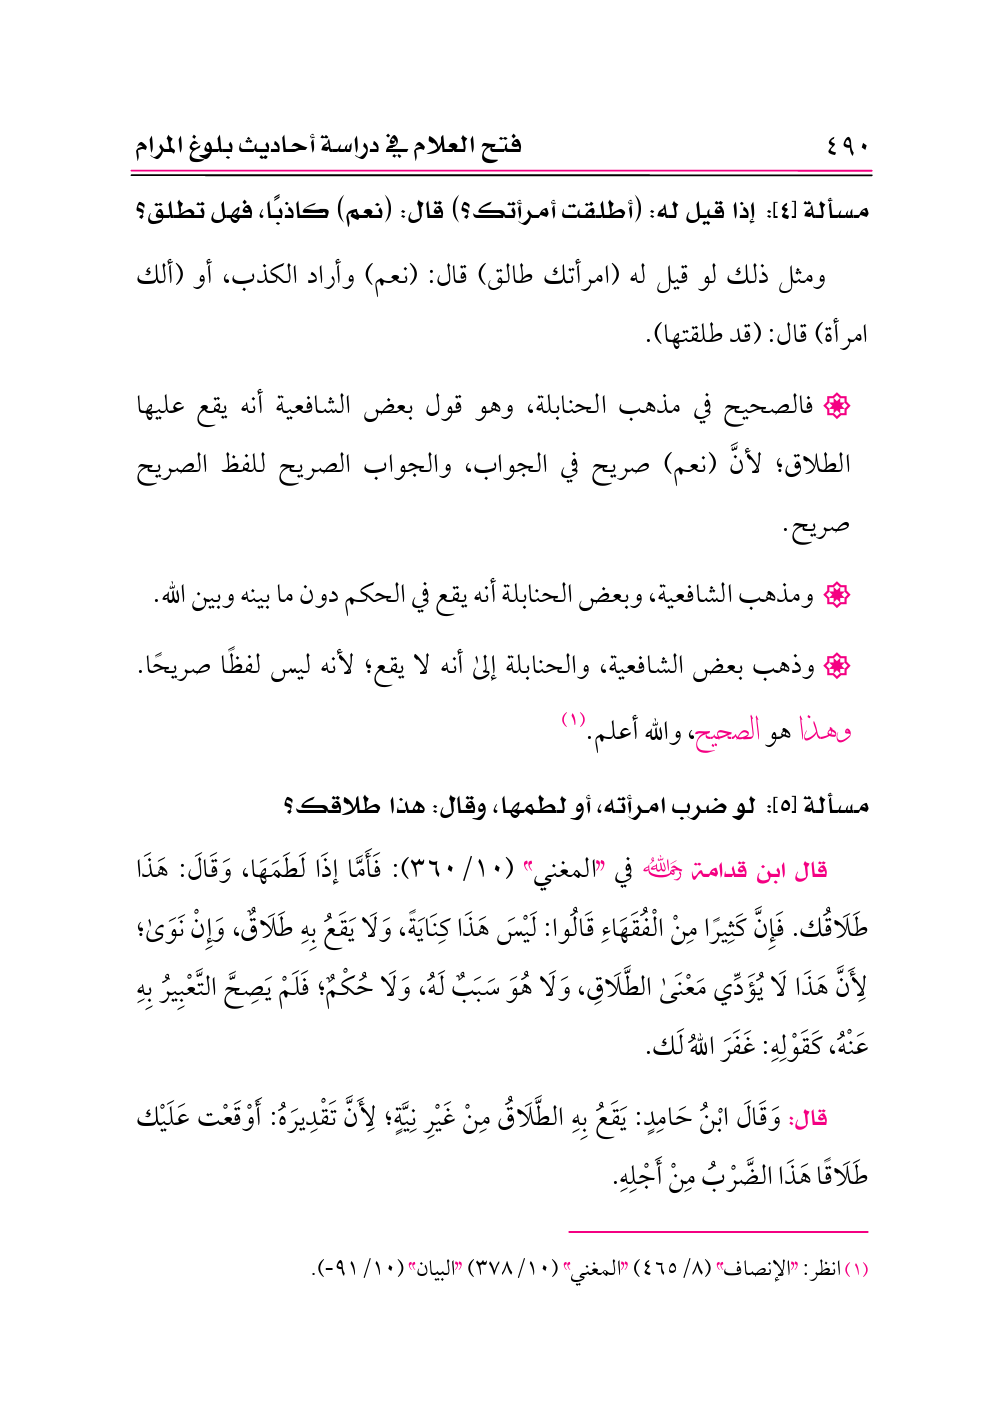 ٤٩٠ فتح العلام في دراسة أحاديث بلوغ المرام
مسألة [٤]: إذا قيل له: (أطلقت أمرأتك؟) قال: (نعم) كاذبًا، فهل تطلق؟
ومثل ذلك لو قيل له (امرأتك طالق) قال: (نعم) وأراد الكذب، أو (ألك
امرأة) قال: (قد طلقتها).
فالصحيح في مذهب الحنابلة، وهو قول بعض الشافعية أنه يقع عليها
الطلاق؛ لأنَّ (نعم) صريح في الجواب، والجواب الصريح للفظ الصريح
صريح.
ومذهب الشافعية، وبعض الحنابلة أنه يقع في الحكم دون ما بينه وبين الله.
وذهب بعض الشافعية، والحنابلة إلىٰ أنه لا يقع؛ لأنه ليس لفظًا صريحًا.
وهذا هو الصحيح، والله أعلم.(١)
مسألة [٥]: لو ضرب امرأته، أو لطمها، وقال: هذا طلاقك؟
قال ابن قدامة رحمه الله في "المغني" (١٠/ ٣٦٠): فَأَمَّا إذَا لَطَمَهَا، وَقَالَ: هَذَا
طَلَاقُك. فَإِنَّ كَثِيرًا مِنْ الْفُقَهَاءِ قَالُوا: لَيْسَ هَذَا كِنَايَةً، وَلَا يَقَعُ بِهِ طَلَاقٌ، وَإِنْ نَوَىٰ؛
لِأَنَّ هَذَا لَا يُؤَدِّي مَعْنَىٰ الطَّلَاقِ، وَلَا هُوَ سَبَبٌ لَهُ، وَلَا حُكْمٌ؛ فَلَمْ يَصِحَّ التَّعْبِيرُ بِهِ
عَنْهُ، كَقَوْلِهِ: غَفَرَ اللهُ لَك.
قال: وَقَالَ ابْنُ حَامِدٍ: يَقَعُ بِهِ الطَّلَاقُ مِنْ غَيْرِ نِيَّةٍ؛ لِأَنَّ تَقْدِيرَهُ: أَوْقَعْت عَلَيْك
طَلَاقًا هَذَا الضَّرْبُ مِنْ أَجْلِهِ.
(١) انظر: "الإنصاف" (٨/ ٤٦٥) "المغني" (١٠/ ٣٧٨) "البيان" (١٠/ ٩١-).